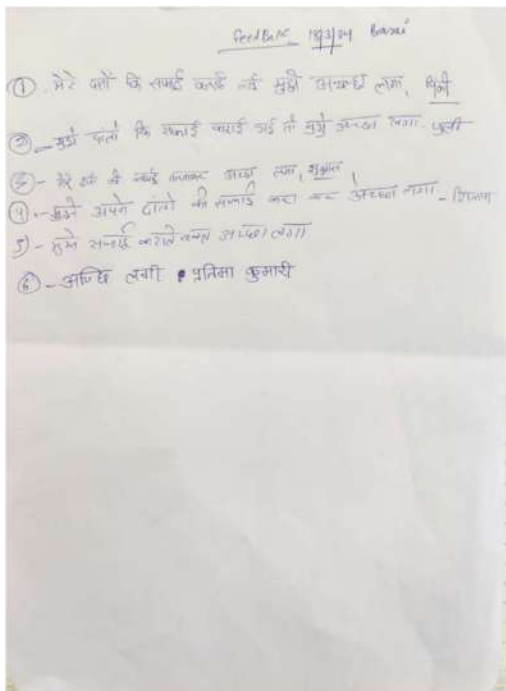 FeedBack 18/3/24
① मेरे दातों कि सफाई कराई गई मुझे अच्छा लगा,
② - मुझे दांतो कि सफाई कराई गई तो मुझे अच्छा लगा.
③ - मेरे की सफाई करवाकर अच्छा लगा,
④ - मुझे अपने दांतो की सफाई करा कर अच्छा लगा -
5) - मुझे सफाई कराते वक्त अच्छा लगा
⑥ - अच्छि लगी प्रतिमा कुमारी